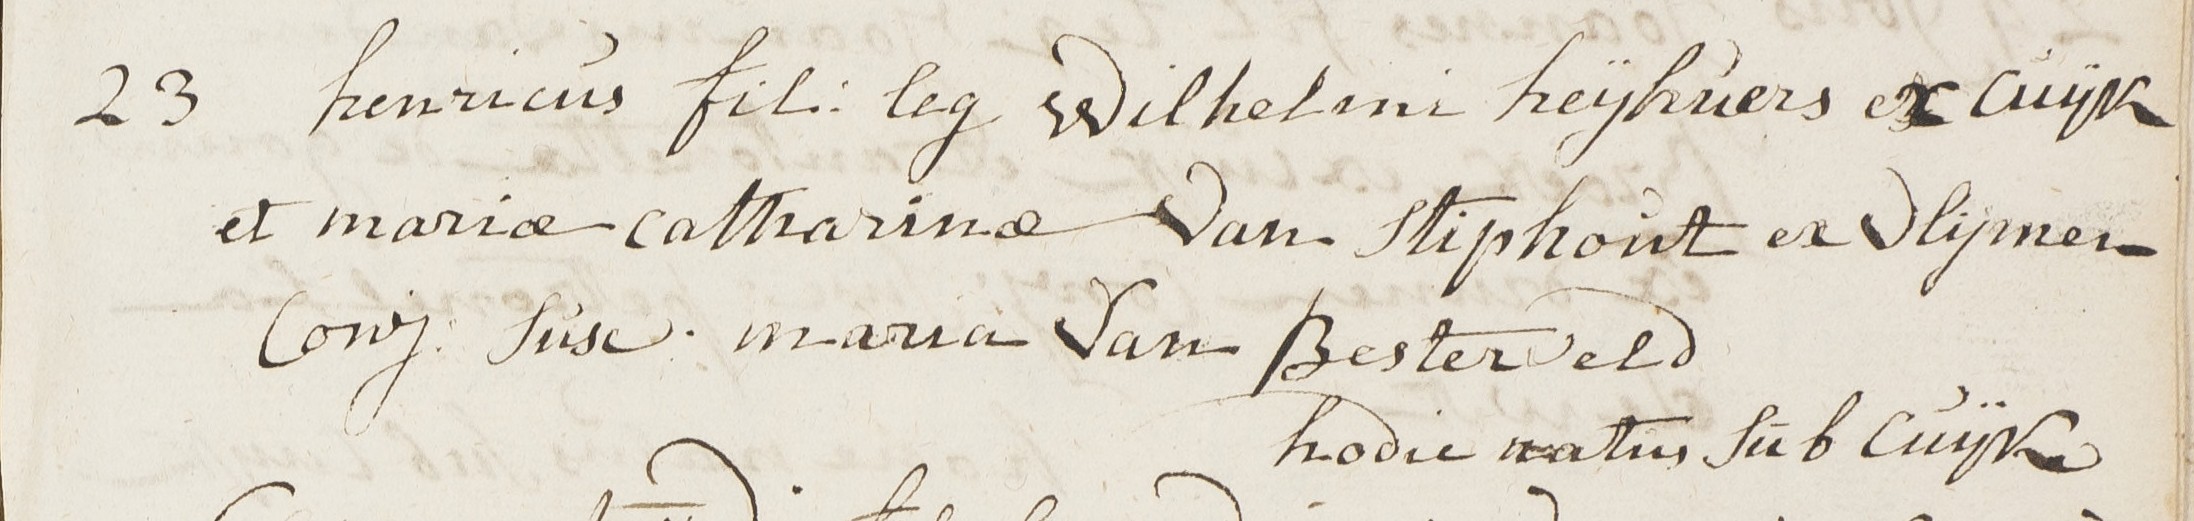 23 henricus fil: leg Wilhelmi heijkuers ex Cuijk
et mariæ Catharinæ Van Stiphout ex Vlijmen
Conj: Susc. maria Van Besterveld
hodie natus sub Cuijk